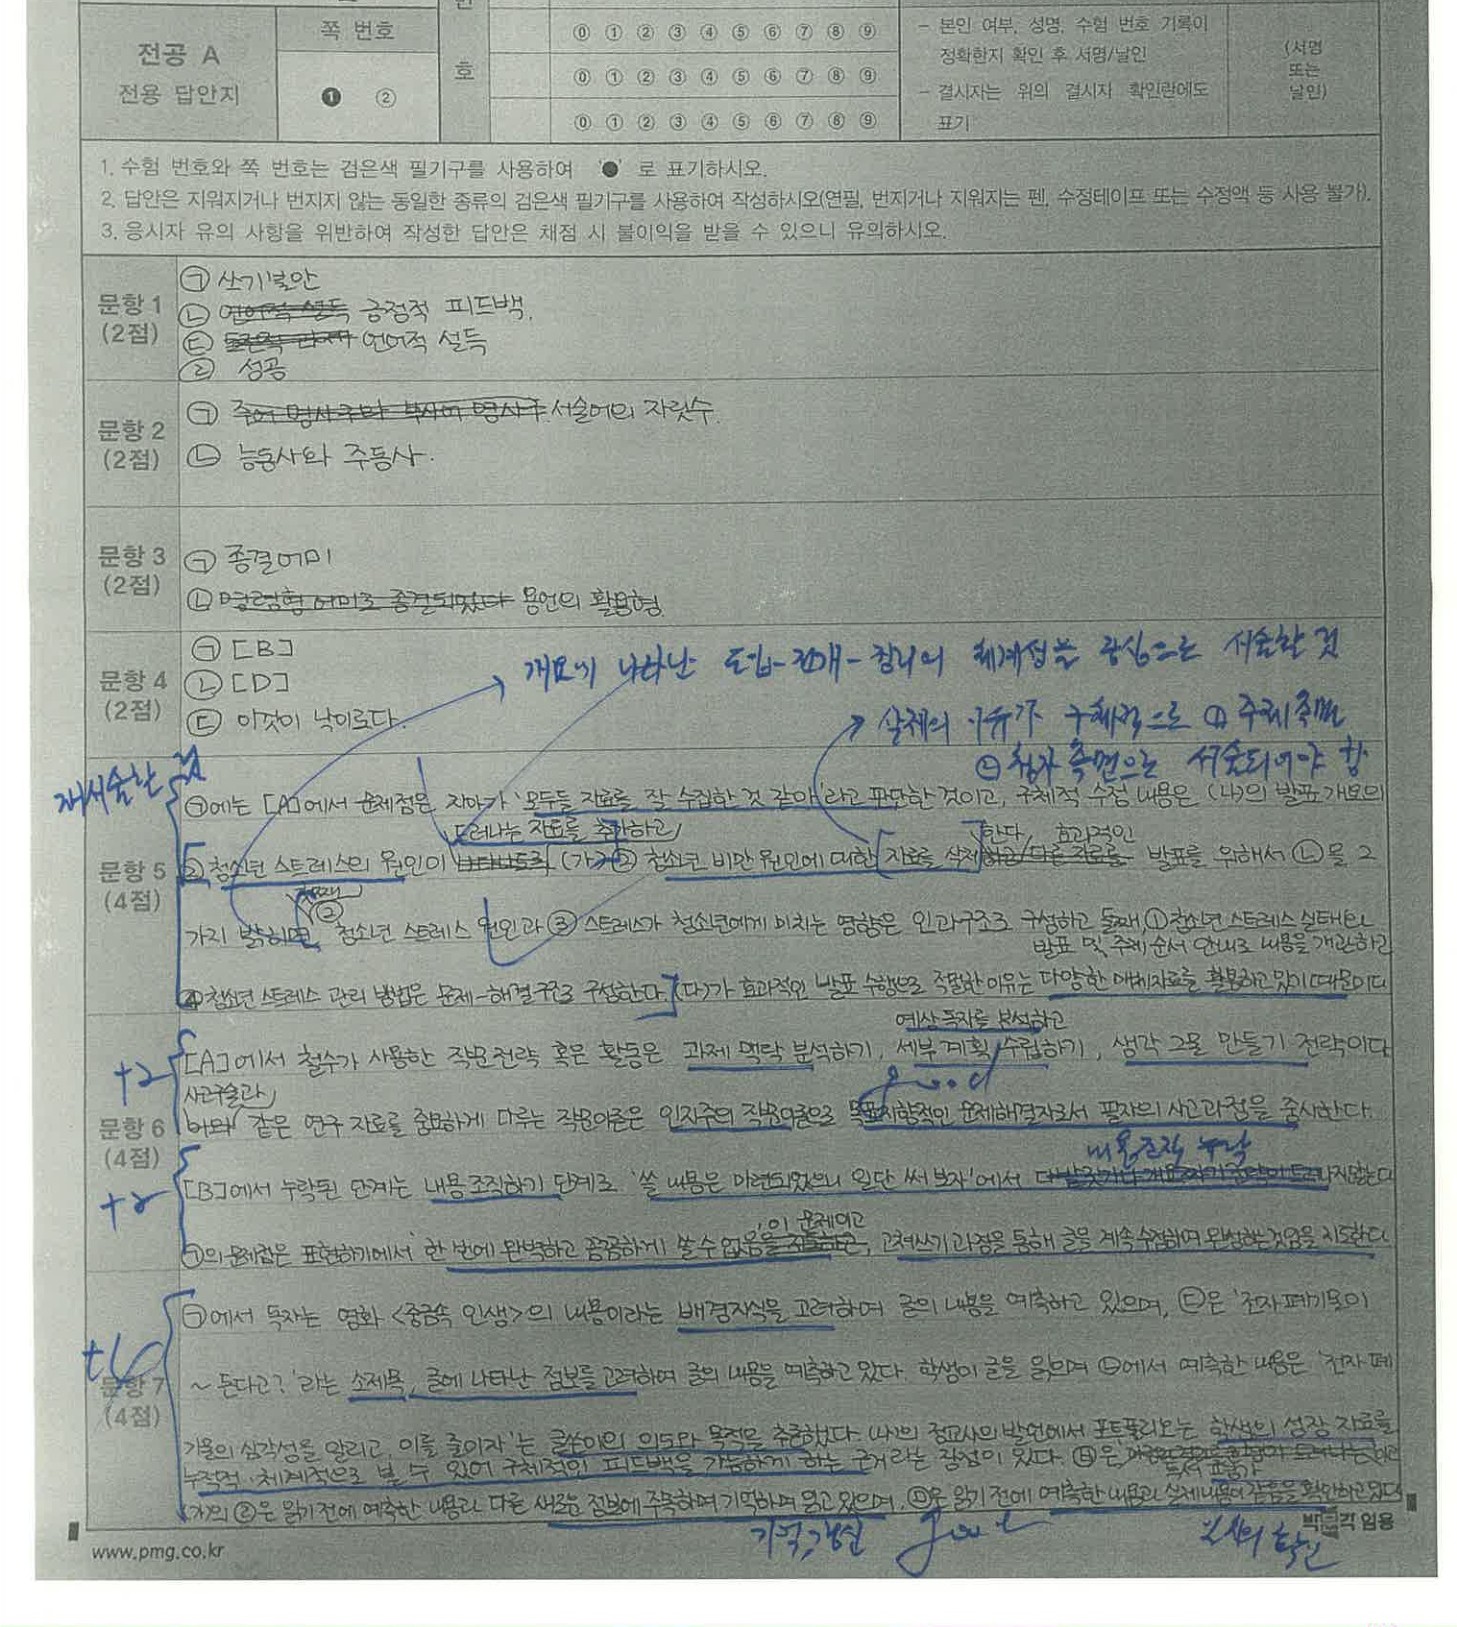 전공 A
전용 답안지
쪽 번호
❶ ②
호
⓪ ① ② ③ ④ ⑤ ⑥ ⑦ ⑧ ⑨
⓪ ① ② ③ ④ ⑤ ⑥ ⑦ ⑧ ⑨
⓪ ① ② ③ ④ ⑤ ⑥ ⑦ ⑧ ⑨
- 본인 여부, 성명, 수험 번호 기록이
정확한지 확인 후 서명/날인
- 결시자는 위의 결시자 확인란에도
표기
(서명
또는
날인)
1. 수험 번호와 쪽 번호는 검은색 필기구를 사용하여 '●' 로 표기하시오.
2. 답안은 지워지거나 번지지 않는 동일한 종류의 검은색 필기구를 사용하여 작성하시오(연필, 번지거나 지워지는 펜, 수정테이프 또는 수정액 등 사용 불가).
3. 응시자 유의 사항을 위반하여 작성한 답안은 채점 시 불이익을 받을 수 있으니 유의하시오.
문항 1
(2점)
㉠ 쓰기불안
㉡ 언어적 설득 긍정적 피드백.
㉢ 언어적 설득
㉣ 성공
문항 2
(2점)
㉠ 서술어의 자릿수.
㉡ 능동사와 주동사.
문항 3
(2점)
㉠ 종결어미
㉡ 명령형 어미로 종결되었다 용언의 활용형
문항 4
(2점)
㉠ [B]
㉡ [D]
㉢ 이것이 낙이로다.
개요에 나타난 도입-전개-정리의 체계성을 중심으로 서술할 것
삭제의 이유가 구체적으로 ㉠ 주제 측면
㉡ 청자 측면으로 서술되어야 함
재서술할 것
문항 5
(4점)
㉠에는 [A]에서 문제점은 지아가 '모두들 자료를 잘 수집한 것 같아'라고 판단한 것이고, 구체적 수정 내용은 (나)의 발표 개요의
드러나는 자료를 추가하고
한다, 효과적인
② 청소년 스트레스의 원인이 (가) ② 청소년 비만 원인에 대한 자료를 삭제 발표를 위해서 ㉡을 2
첫째
가지 밝히면, ② 청소년 스트레스 원인과 ③ 스트레스가 청소년에게 미치는 영향은 인과구조로 구성하고 둘째, ① 청소년 스트레스 실태와
발표 및 주제 순서 안내로 내용을 개관하고
④ 청소년 스트레스 관리 방법은 문제-해결 구조로 구성한다. (다)가 효과적인 발표 수행으로 적절한 이유는 다양한 매체자료를 활용하고 있기 때문이다
문항 6
(4점)
+2
예상독자를 분석하고
[A]에서 철수가 사용한 작문 전략 혹은 활동은 과제 맥락 분석하기, 세부 계획 수립하기, 생각 그물 만들기 전략이다
good
사고구술과
같은 연구 자료를 중요하게 다루는 작문이론은 인지주의 작문이론으로 목표지향적인 문제해결자로서 필자의 사고과정을 중시한다.
+2
내용조직 누락
[B]에서 누락된 단계는 내용조직하기 단계로 '쓸 내용은 마련되었으니 일단 써 보자'에서
이 문제이고
㉠의 문제점은 표현하기에서 '한 번에 완벽하고 꼼꼼하게 쓸 수 없음, 고쳐쓰기 과정을 통해 글을 계속 수정하여 완성하는 것임을 지도한다
문항 7
(4점)
㉠에서 독자는 영화 <중금속 인생>의 내용이라는 배경지식을 고려하며 글의 내용을 예측하고 있으며, ㉢은 '전자 폐기물이
~ 든다고?'라는 소제목, 글에 나타난 정보를 고려하며 글의 내용을 예측하고 있다. 학생이 글을 읽으며 ㉡에서 예측한 내용은 '전자 폐
기물의 심각성을 알리고, 이를 줄이자'는 글쓴이의 의도와 목적을 추론했다. (나)의 정교사의 발언에서 포트폴리오는 학생의 성장 자료를
누적적·체계적으로 볼 수 있어 구체적인 피드백을 가능하게 하는 근거라는 장점이 있다.
(가)의 ㉣은 읽기 전에 예측한 내용과 다른 새로운 정보에 주목하며 기억하며 읽고 있으며, ㉤은 읽기 전에 예측한 내용과 실제 내용이 같음을 확인하고 있다
기억, 갱신
good
www.pmg.co.kr
박문각 임용